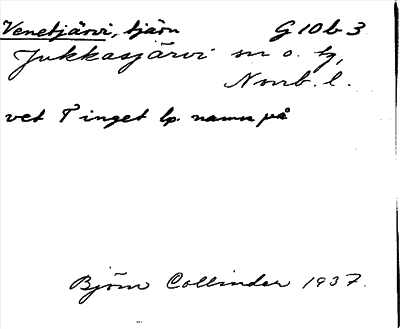 Venetjärvi, tjärn G10b3
Jukkasjärvi sn o. tg,
Norrb. l.
vet T inget lp. namn på
Björn Collinder 1937.